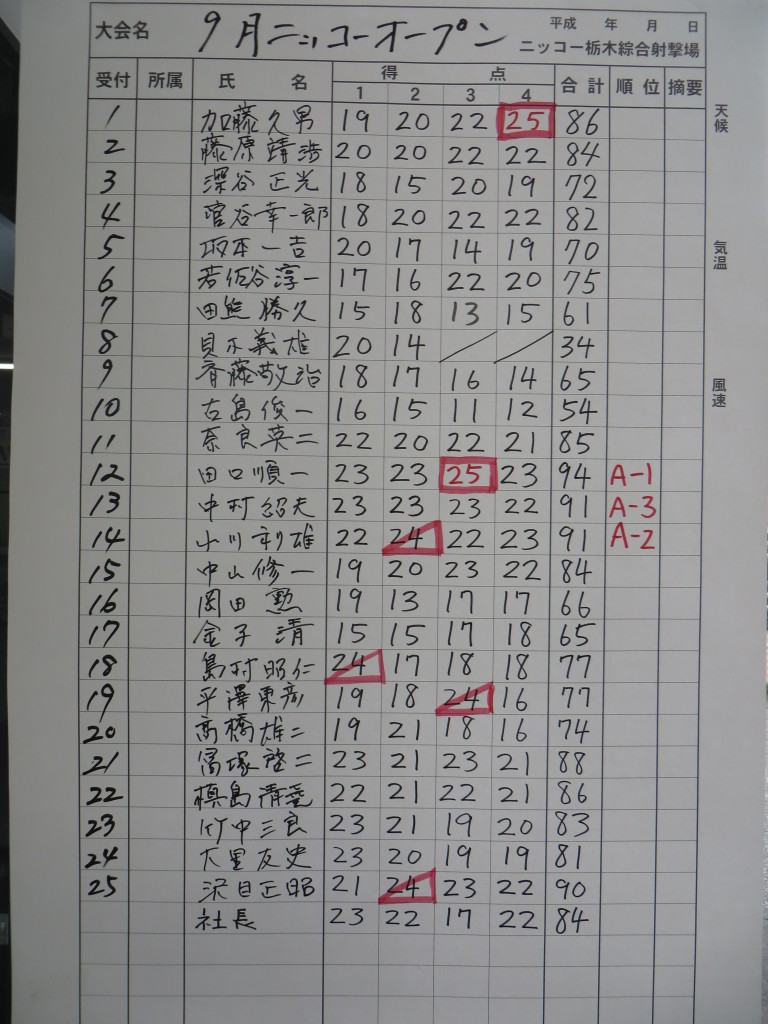 大会名 9月ニッコーオープン 平成 年 月 日
ニッコー栃木綜合射撃場
受付 所属 氏 名 得 点 合計 順位 摘要
1 2 3 4
1 加藤久男 19 20 22 25 86
2 藤原靖浩 20 20 22 22 84
3 深谷正光 18 15 20 19 72
4 菅谷幸一郎 18 20 22 22 82
5 坂本一吉 20 17 14 19 70
6 若佐谷淳一 17 16 22 20 75
7 田熊勝久 15 18 13 15 61
8 義雄 20 14 / / 34
9 斉藤敬治 18 17 16 14 65
10 古島俊一 16 15 11 12 54
11 奈良英二 22 20 22 21 85
12 田口順一 23 23 25 23 94 A-1
13 中村紹夫 23 23 23 22 91 A-3
14 小川利雄 22 24 22 23 91 A-2
15 中山修一 19 20 23 22 84
16 岡田勲 19 13 17 17 66
17 金子清 15 15 17 18 65
18 島村昭仁 24 17 18 18 77
19 平澤東彦 19 18 24 16 77
20 高橋雄二 19 21 18 16 74
21 冨塚啓二 23 21 23 21 88
22 槙島清 22 21 22 21 86
23 竹中三良 23 21 19 20 83
24 大里友史 23 20 19 19 81
25 沢目正昭 21 24 23 22 90
社長 23 22 17 22 84
天候
気温
風速